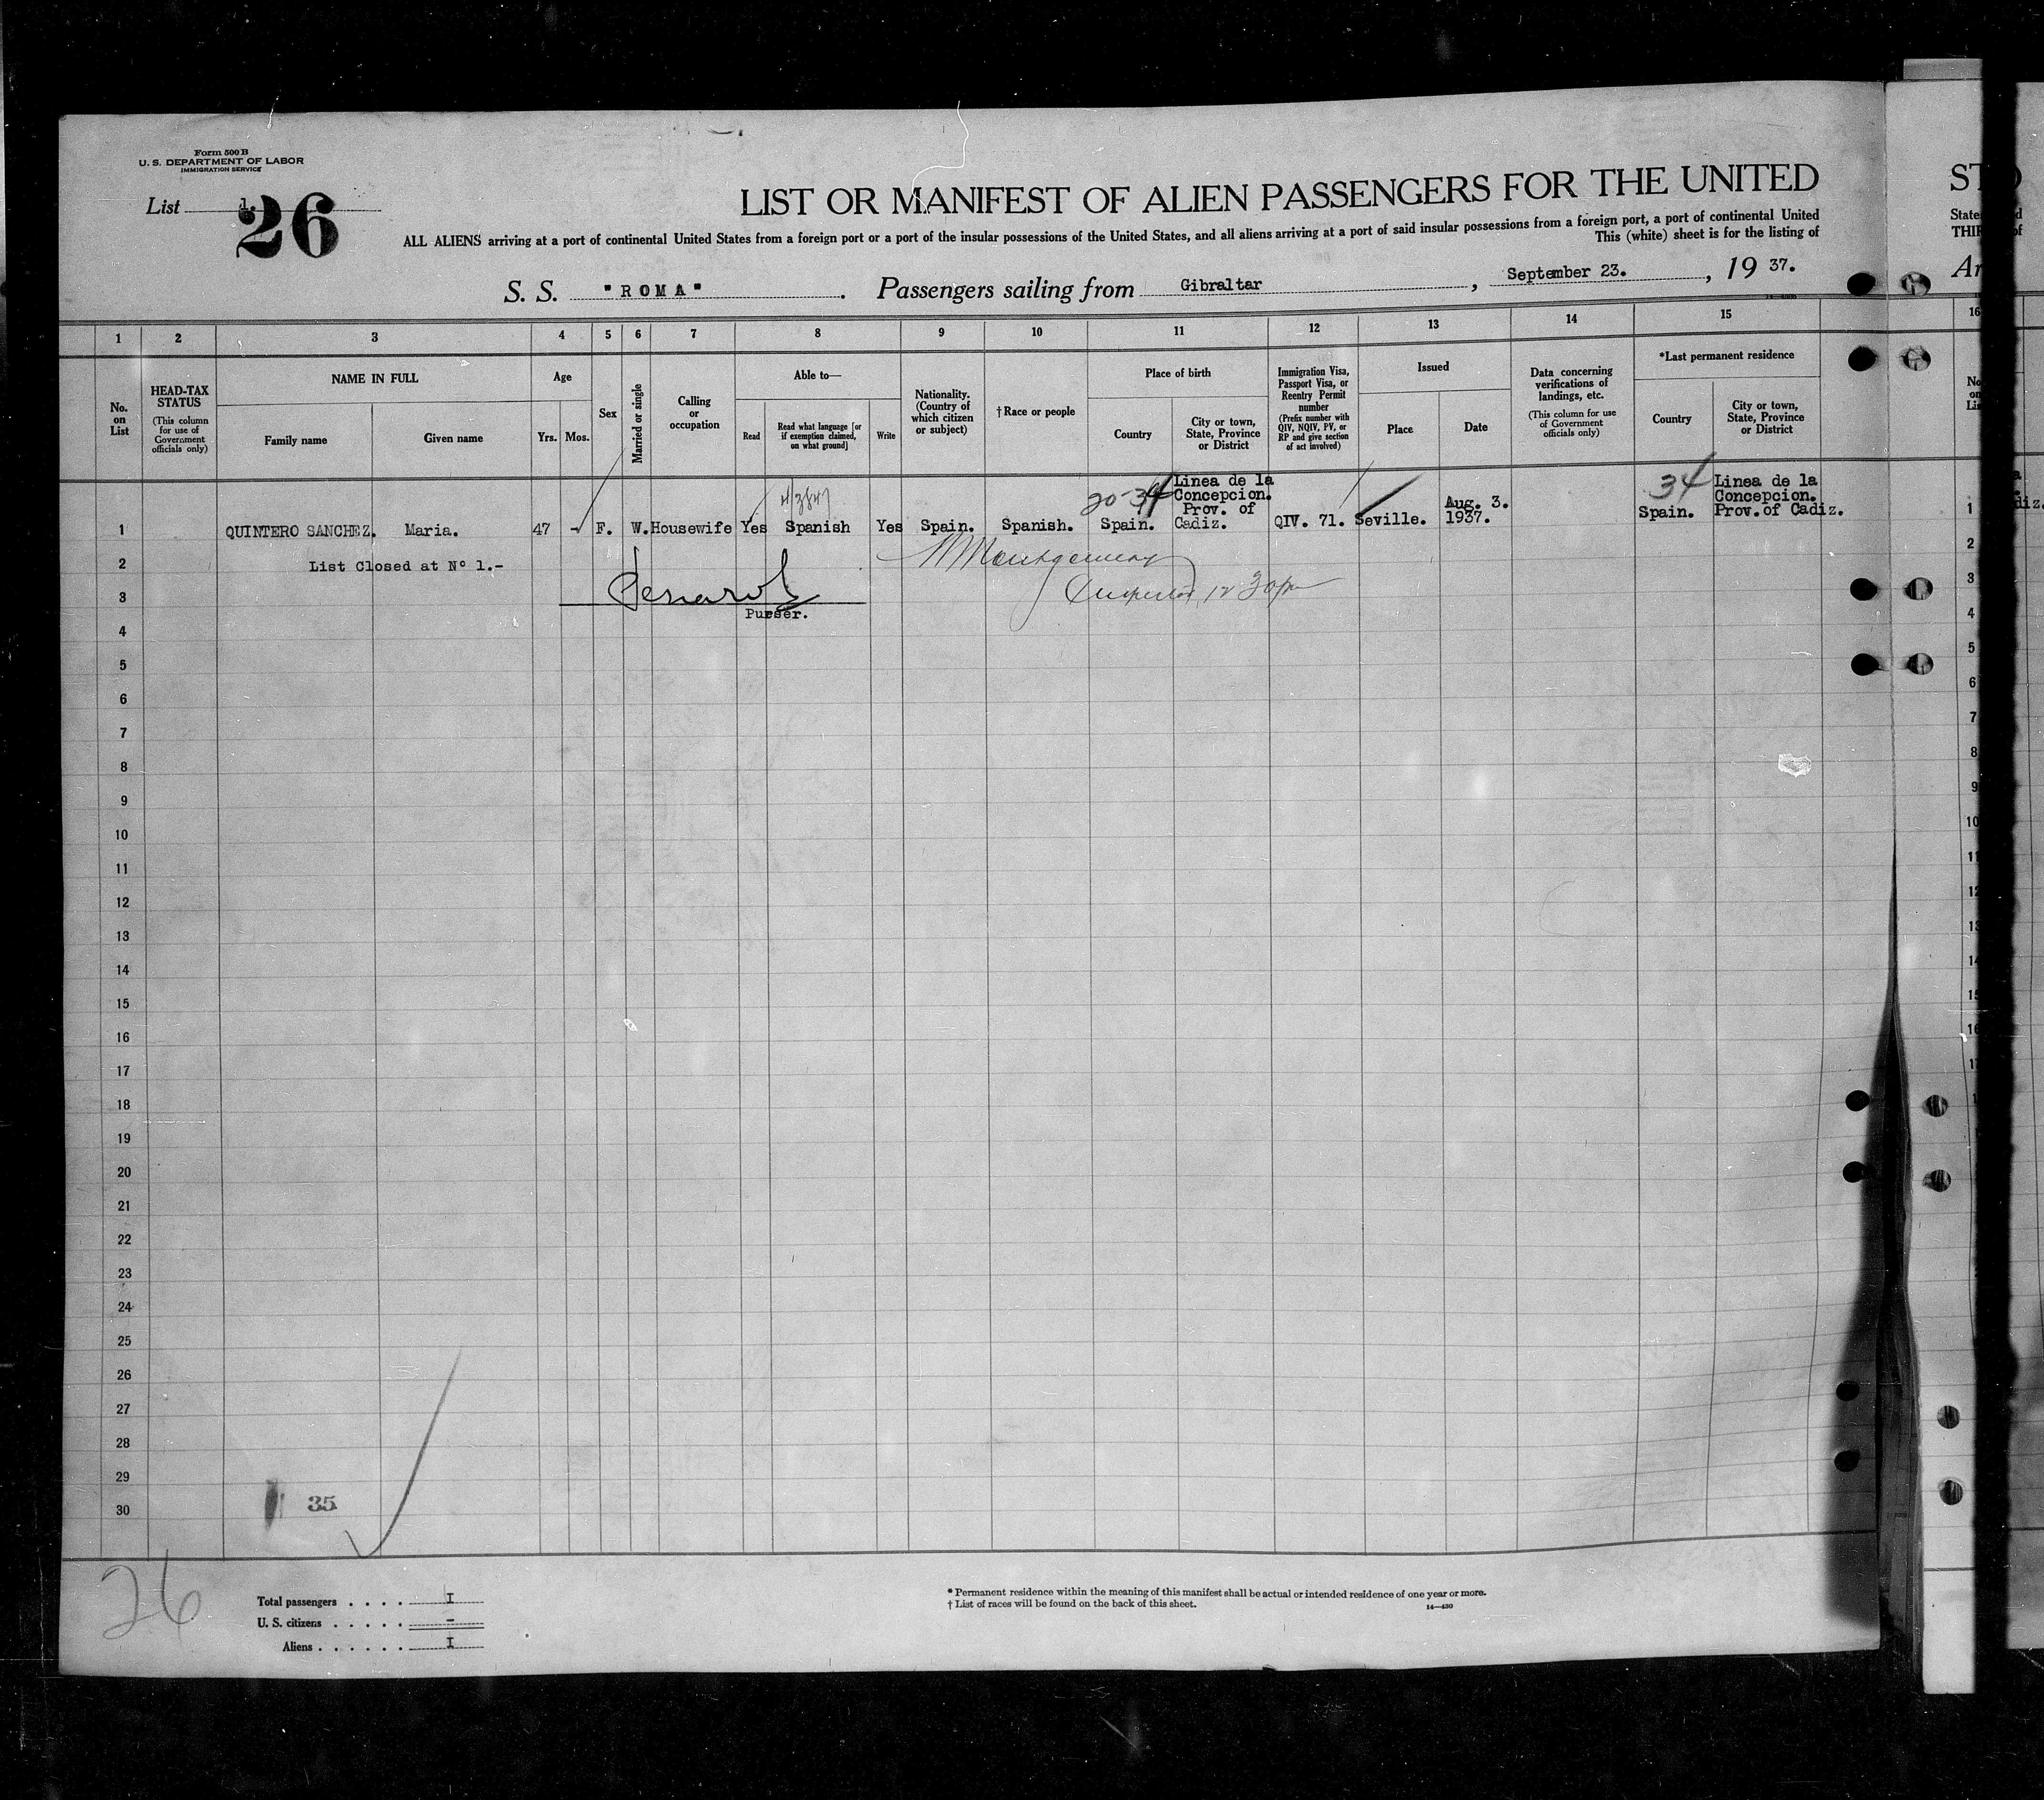 Form 500 B
U. S. DEPARTMENT OF LABOR
IMMIGRATION SERVICE
List 1.
26
LIST OR MANIFEST OF ALIEN PASSENGERS FOR THE UNITED
ALL ALIENS arriving at a port of continental United States from a foreign port or a port of the insular possessions of the United States, and all aliens arriving at a port of said insular possessions from a foreign port, a port of continental United
This (white) sheet is for the listing of
S. S. "ROMA" . Passengers sailing from Gibraltar , September 23. , 19 37.
1 2 3 4 5 6 7 8 9 10 11 12 13 14 15
No. on List
HEAD-TAX STATUS
(This column for use of Government officials only)
NAME IN FULL
Family name
Given name
Age
Yrs.
Mos.
Sex
Married or single
Calling or occupation
Able to—
Read
Read what language [or if exemption claimed, on what ground]
Write
Nationality. (Country of which citizen or subject)
† Race or people
Place of birth
Country
City or town, State, Province or District
Immigration Visa, Passport Visa, or Reentry Permit number
(Prefix number with QIV, NQIV, PV, or RP and give section of act involved)
Issued
Place
Date
Data concerning verifications of landings, etc.
(This column for use of Government officials only)
*Last permanent residence
Country
City or town, State, Province or District
1 QUINTERO SANCHEZ. Maria. 47 - F. W. Housewife Yes Spanish Yes Spain. Spanish. Spain. Linea de la Concepcion. Prov. of Cadiz. QIV. 71. Seville. Aug. 3. 1937. Spain. Linea de la Concepcion. Prov. of Cadiz.
20-34
34
2 List Closed at Nº 1.-
Montgomery
3
Inspector 12 30 pm
Purser.
4
5
6
7
8
9
10
11
12
13
14
15
16
17
18
19
20
21
22
23
24
25
26
27
28
29
30
35
26
Total passengers . . . . I
U. S. citizens . . . . . -
Aliens . . . . . . I
* Permanent residence within the meaning of this manifest shall be actual or intended residence of one year or more.
† List of races will be found on the back of this sheet.
14—430